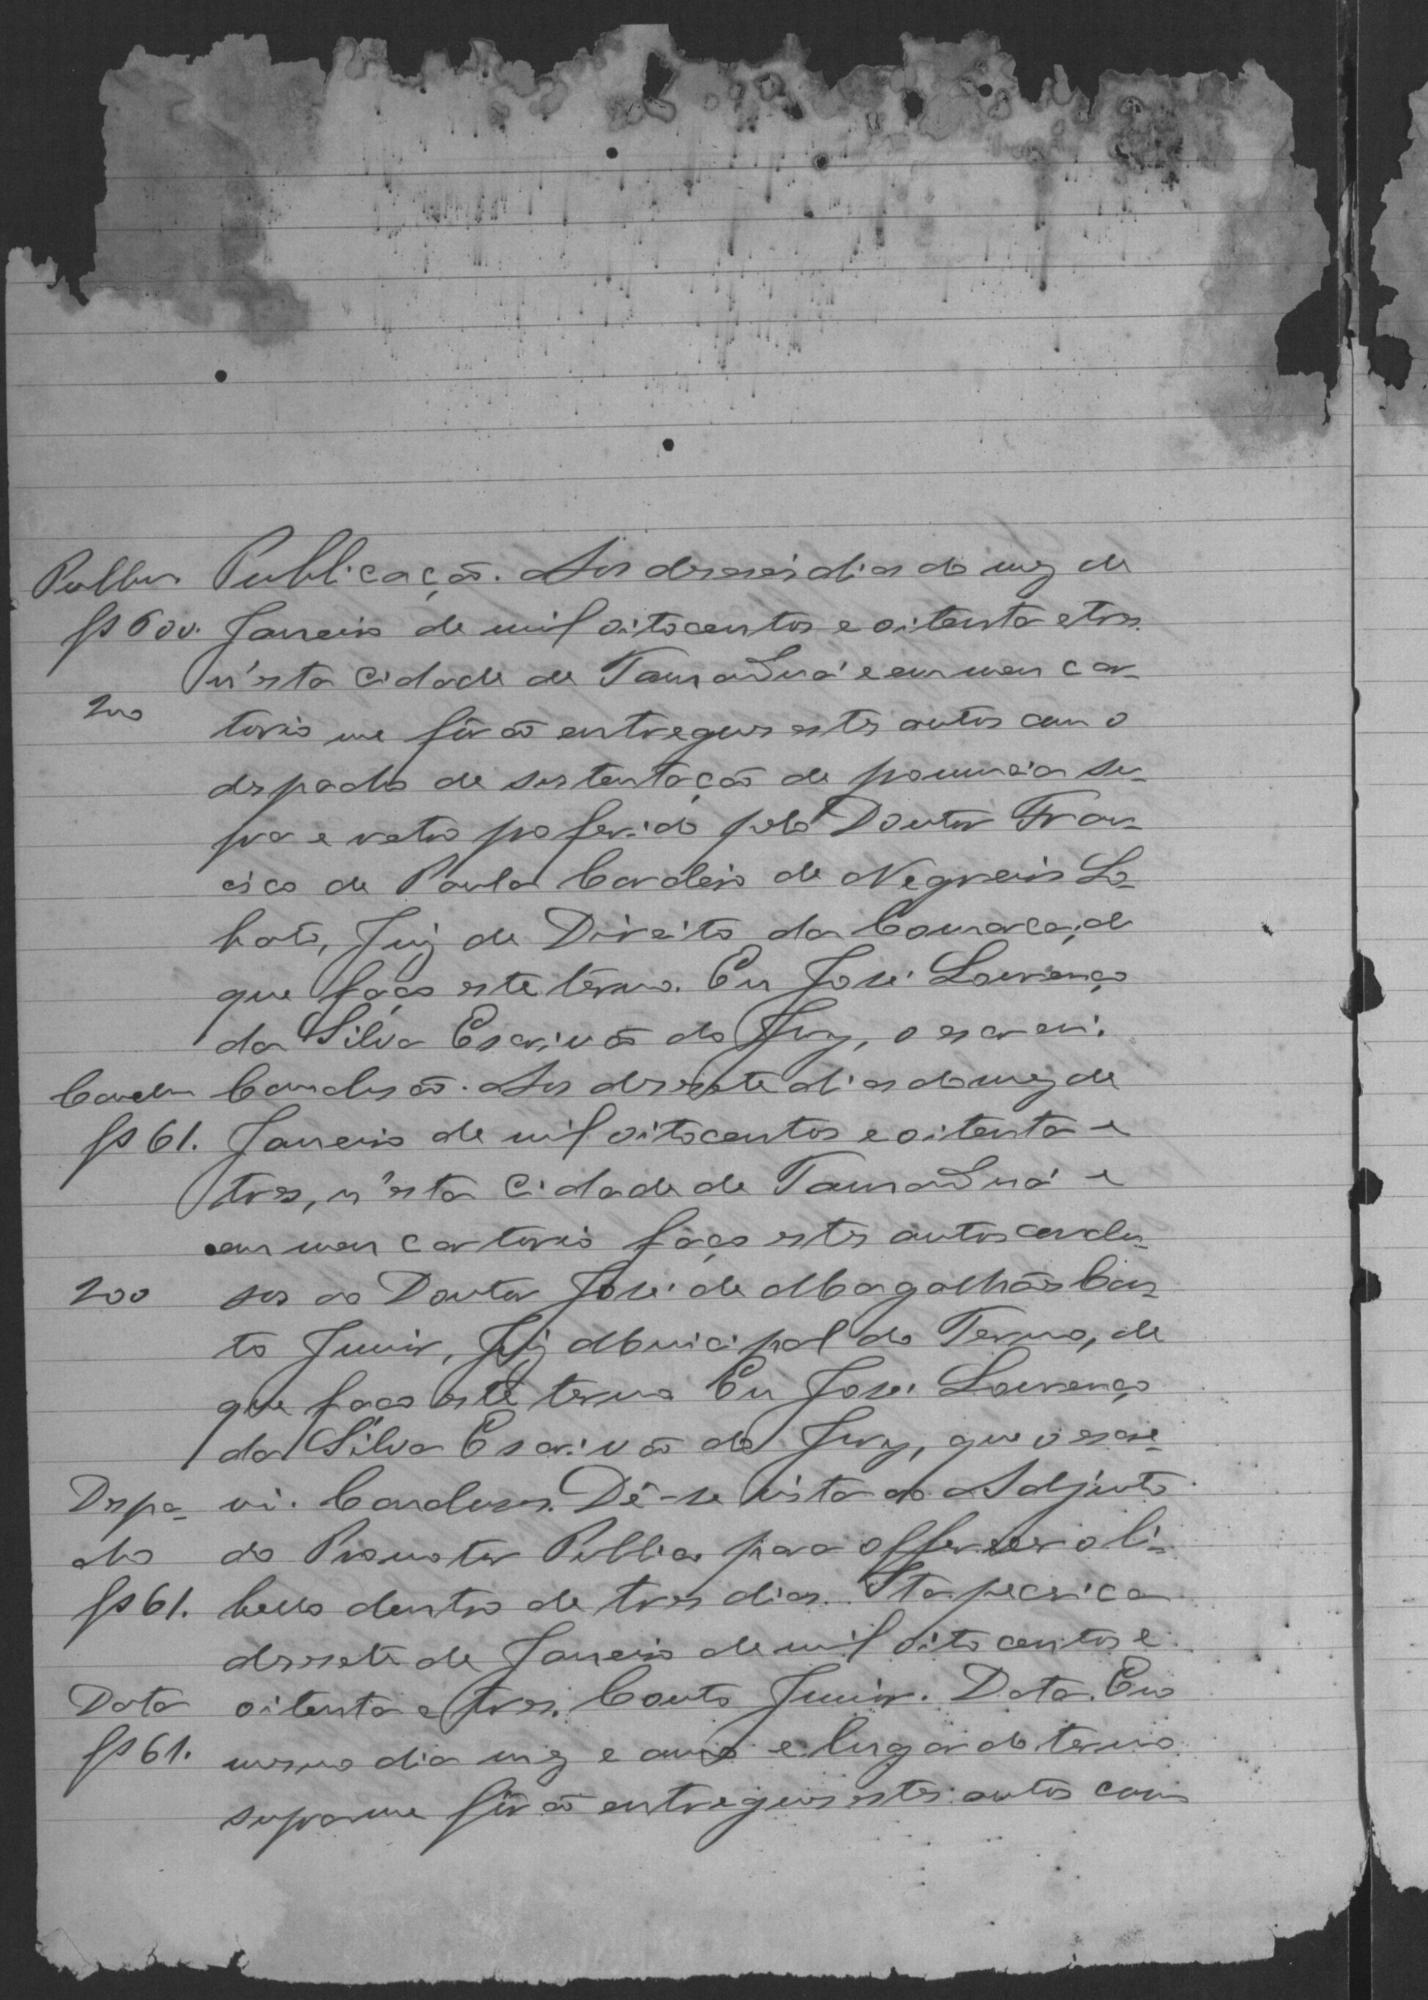 Public. Publicação. Aos deseseis dias do mez de
fs 60v. Janeiro de mil oitocentos e oitenta e tres.
n'esta Cidade de Tamanduá e em meu car-
200 torio me forão entregues estes autos com o
despacho de sustentação de pronuncia su-
pra e retro proferido pelo Doutor Fran-
cisco de Paula Cordeiro de Negreiros Lo-
bato, Juiz de Direito da Comarca, de
que faço este termo. Eu José Lourenço
da Silva Escrivão do Jury, o escrevi.
Conclm Conclusão. Aos desesete dias do mez de
fs 61. Janeiro de mil oitocentos e oitenta e
tres, n'esta Cidade de Tamanduá e
em meu cartorio faço estes autos conclu-
200 sos ao Doutor José de Magalhães Cou-
to Junior, Juiz Municipal do Termo, de
que faço este termo Eu José Lourenço
da Silva Escrivão do Jury, que o escre-
Despa- vi. Conclusos. Dê-se vista ao Adjunto
cho do Promotor Publico para offerecer o li-
fs 61. bello dentro de tres dias. Itapecerica
desesete de Janeiro de mil oitocentos e
Data oitenta e tres. Couto Junior. Data. Em o
fs 61. mesmo dia mez e anno e lugar do termo
supra me forão entregues estes autos com